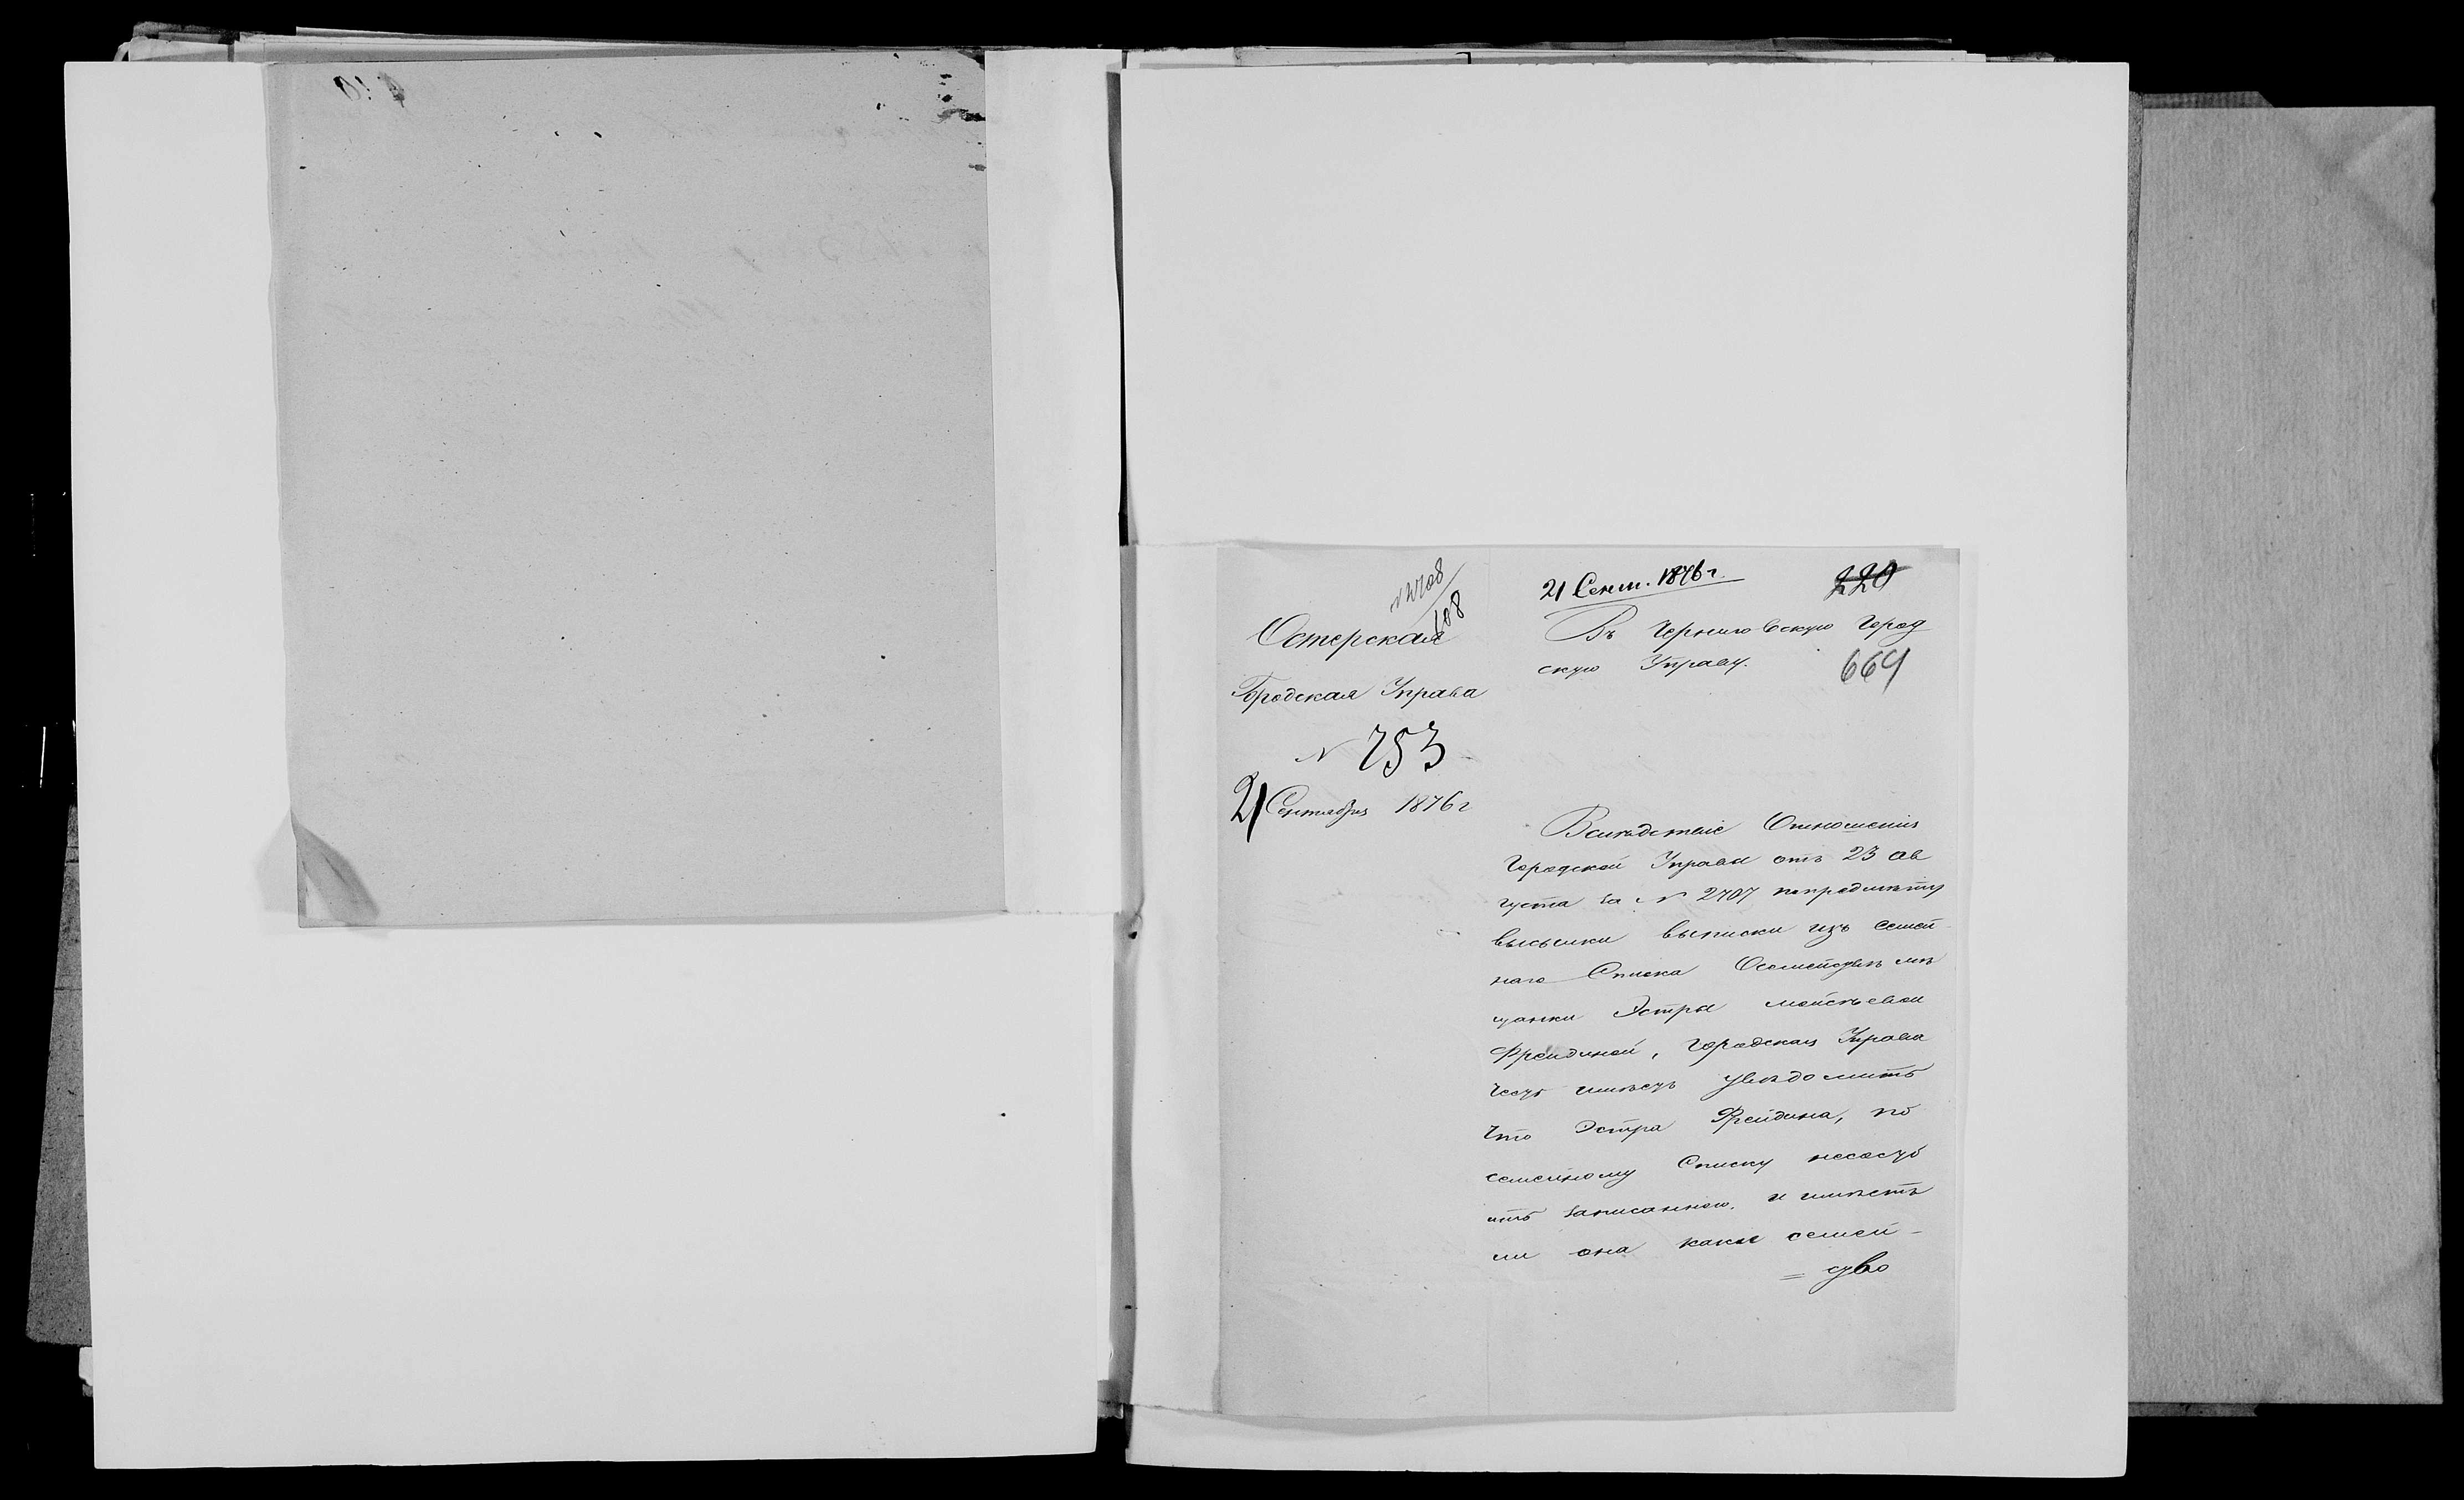 № 2708/608
Остерская
Городская Управа
№ 753
21 Сентября 1876 г
21 Сент. 1876 г.
220
Въ Черниговскую Город
скую Управу.
664
Вслѣдствіе Отношенія
Городской Управы отъ 23 ав
густа за № 2707 попредмѣту
высылки выписки изъ семей
наго Списка Осемействѣ мѣ
щанки Эстры мойсѣевой
Фрейдиной, Городская Управа
честь имѣетъ увѣдомить
что Эстра Фрейдина, по
семейному Списку несосто
итъ записанною, и имѣетъ
ли она какое семей-
= ство